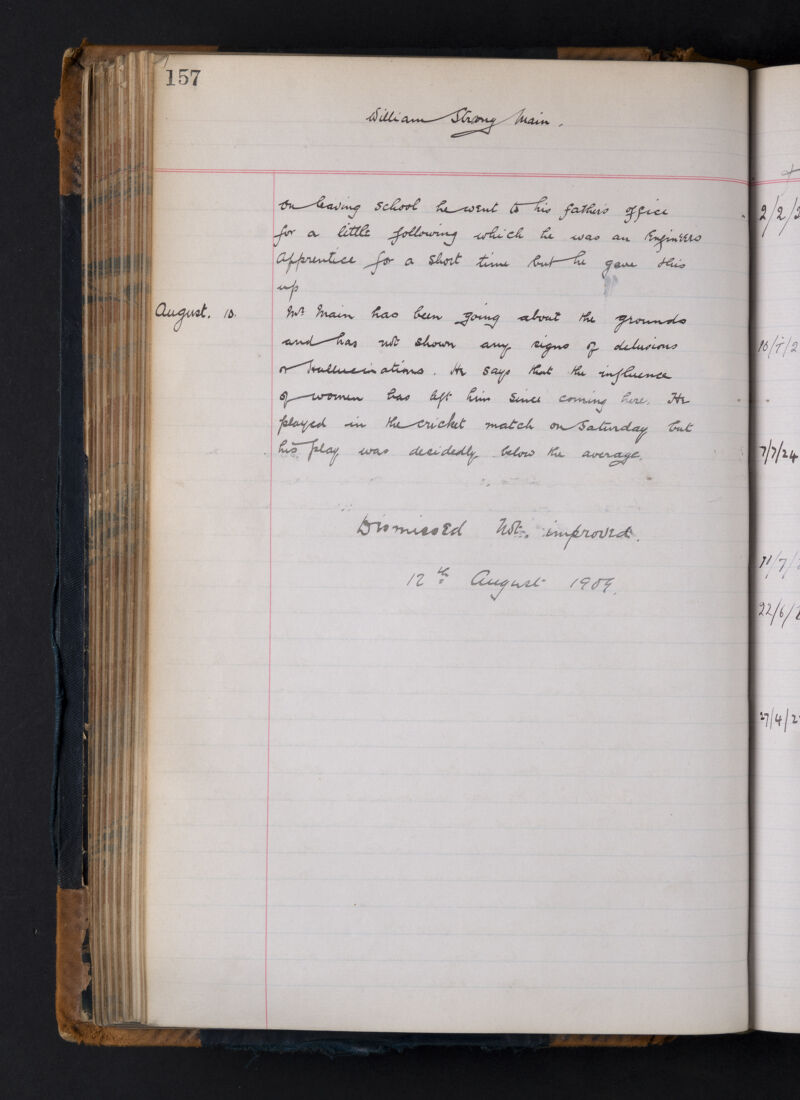 157
William Strong Main.
On leaving school he went to his fathers office
for a little following which he was an Engineers
Apprentice for a short time but he gave this
up
August. 10. Mr Main has been going about the grounds
and has not shown any signs of delusions
or hallucinations. He says that the influence
of women has left him since coming here. He
played in the cricket match on Saturday but
his play was decidedly below the average.
Dismissed Not. improved.
12th August 1909.
2/2/2
10/7/2
7/7/24
11/7/2
22/6/2
27/4/2